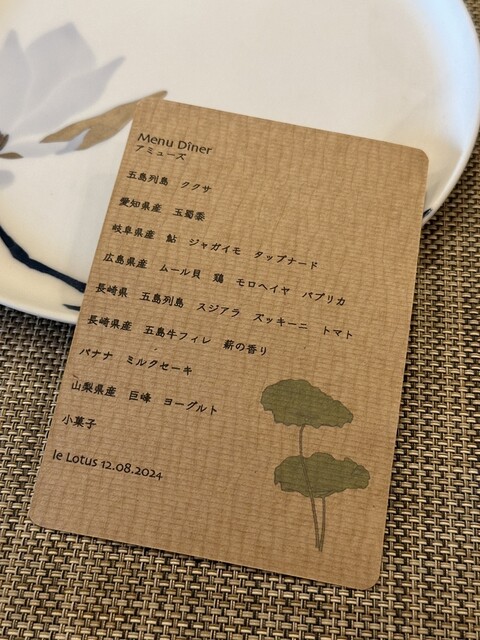 Menu Dîner
アミューズ
五島列島　ククサ
愛知県産　玉蜀黍
岐阜県産　鮎　ジャガイモ　タップナード
広島県産　ムール貝　鶏　モロヘイヤ　パプリカ
長崎県　五島列島　スジアラ　ズッキーニ　トマト
長崎県産　五島牛フィレ　薪の香り
バナナ　ミルクセーキ
山梨県産　巨峰　ヨーグルト
小菓子
le Lotus 12.08.2024